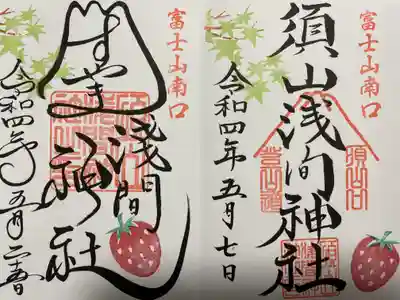 富士山南口
須山浅间神社
須山口
登山道
令和四年五月七日
富士山南口
すやま
淺间神社
令和四年五月二十五日